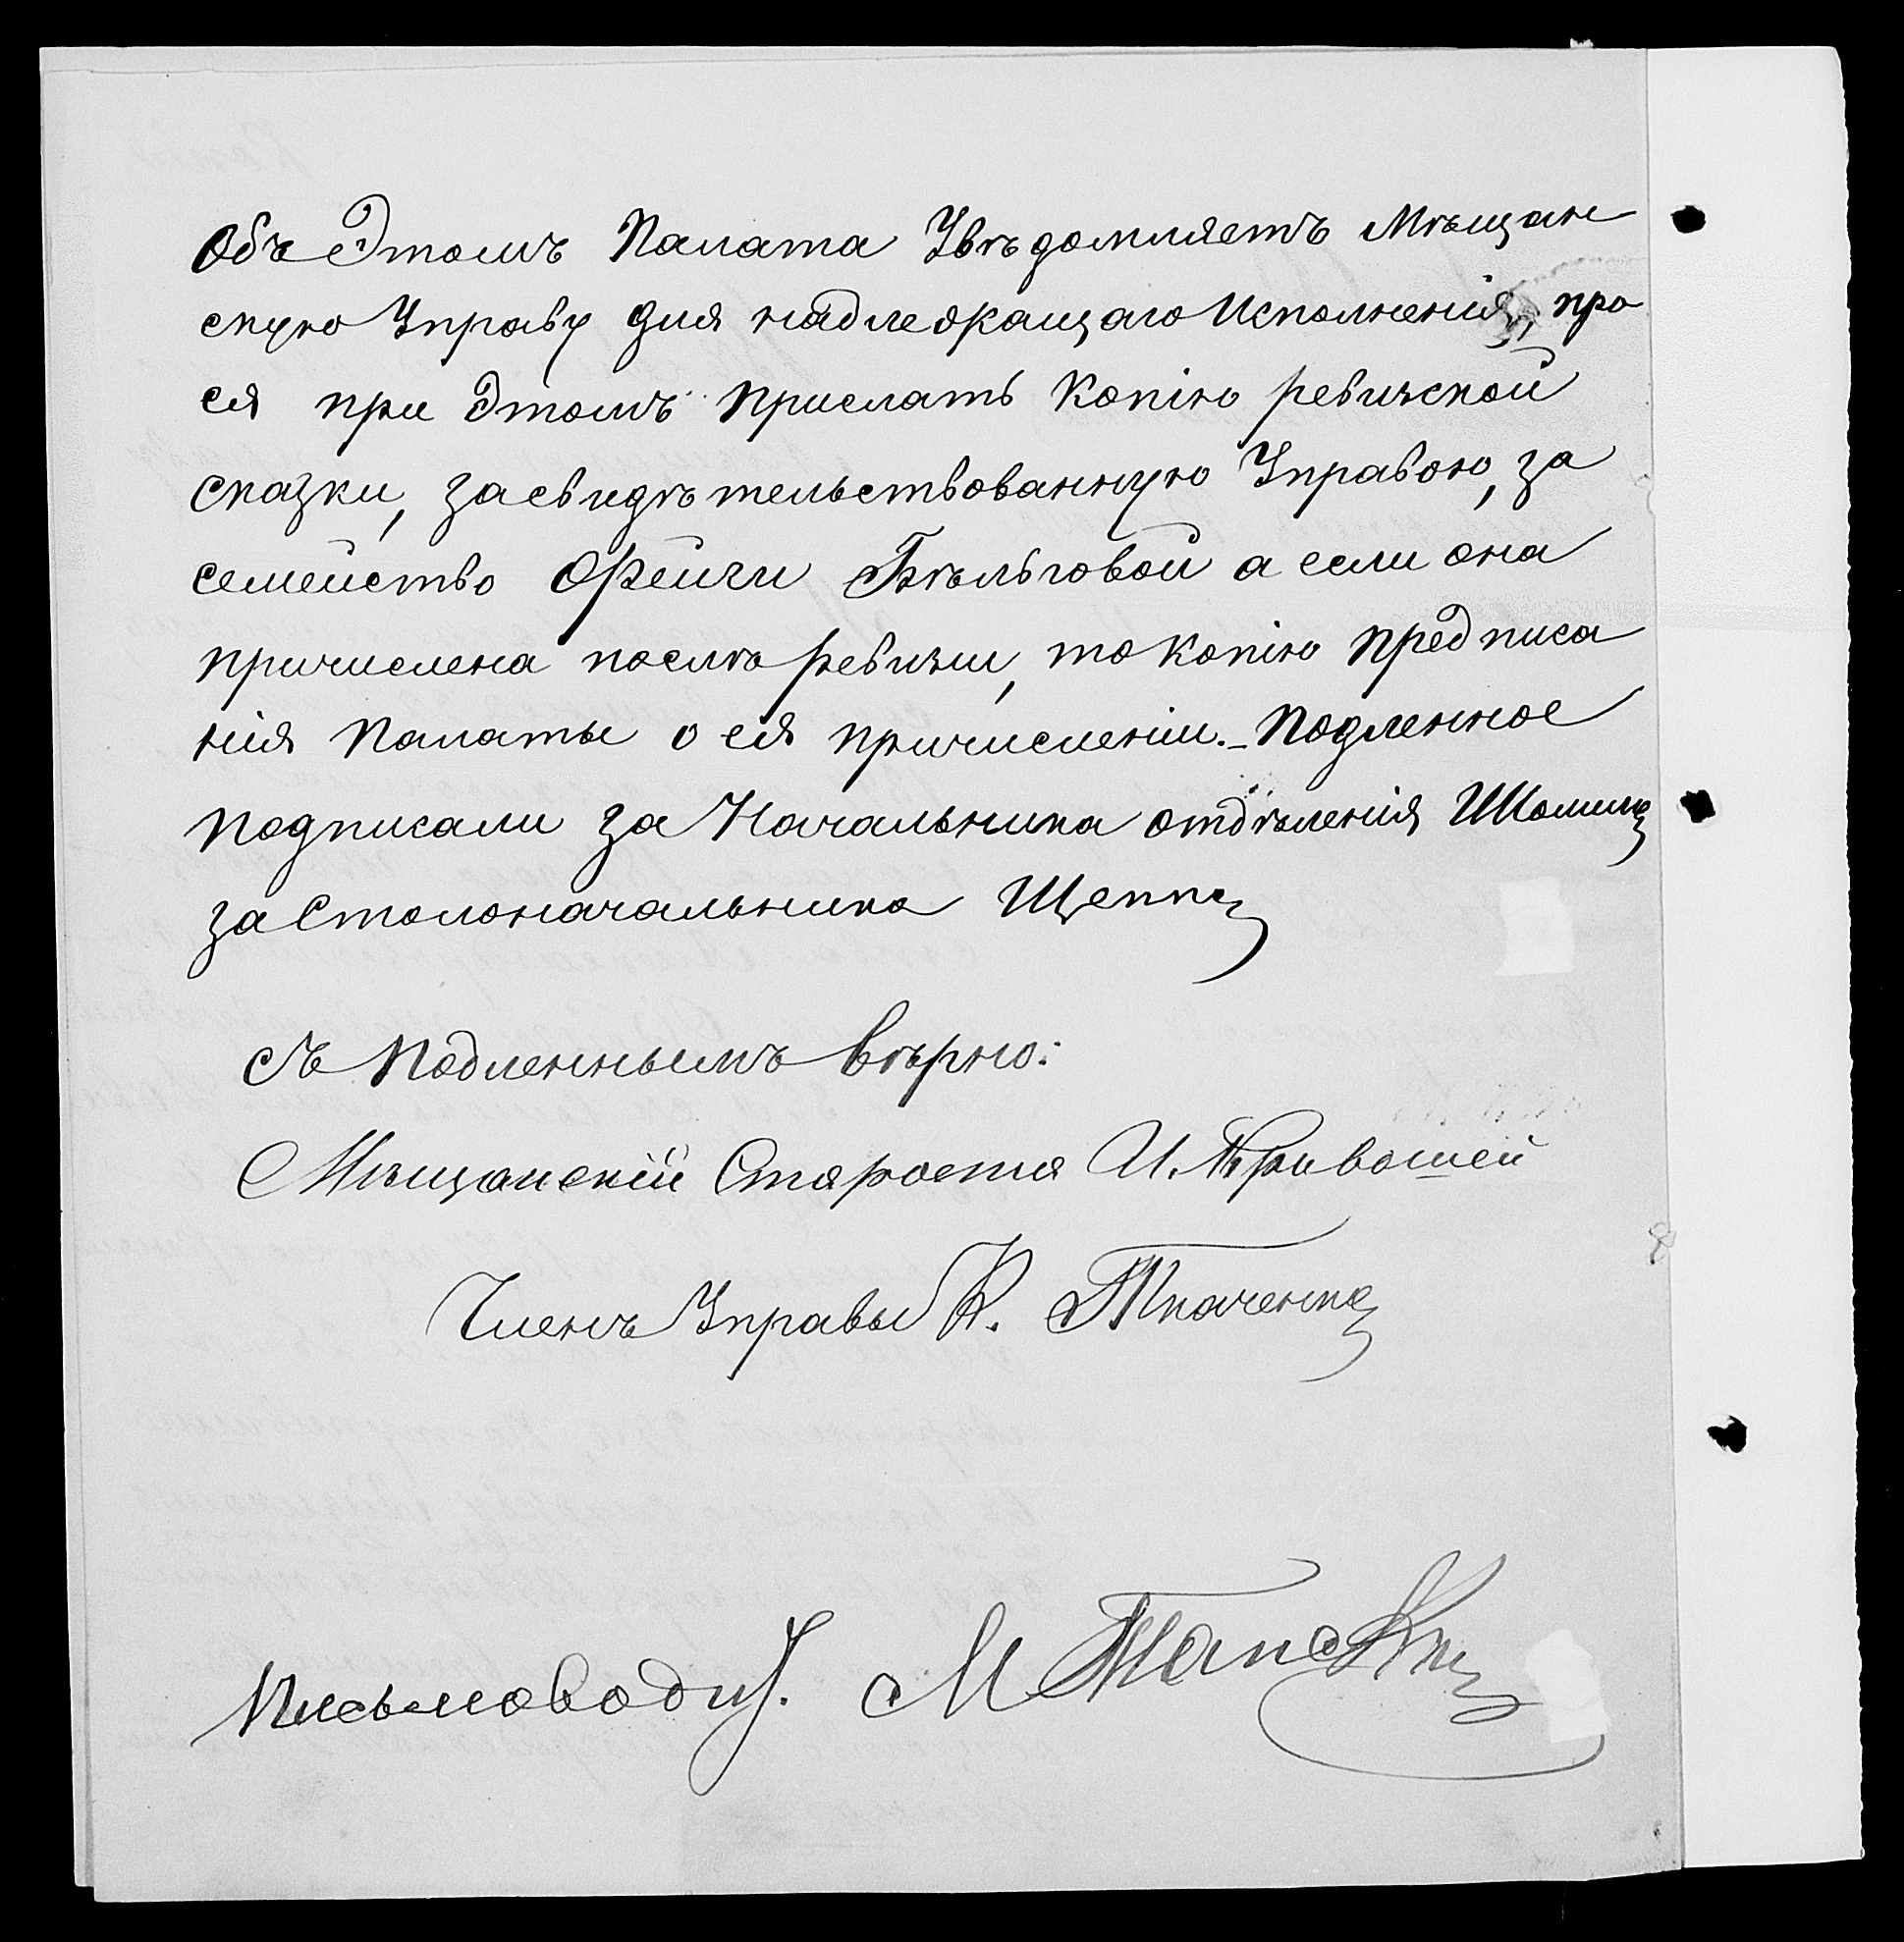 Объ Этомъ Палата Увѣдомляетъ Мѣщан
скую Управу для надлежащаго Исполненія, про
ся при Этомъ прислать Копію ревизской
сказки, засвидѣтельствованную Управою, за
семейство Фейги Бѣльговой а если она
причислена послѣ ревизіи, то Копію предписа
нія Палаты о ея причисленіи. - Подленное
подписали за Начальника отдѣленія
за Столоначальника
съ Подленнымъ вѣрно:
Мѣщанскій Староста И. Кривошей
Членъ Управы К. Ткаченко
Письмовод М